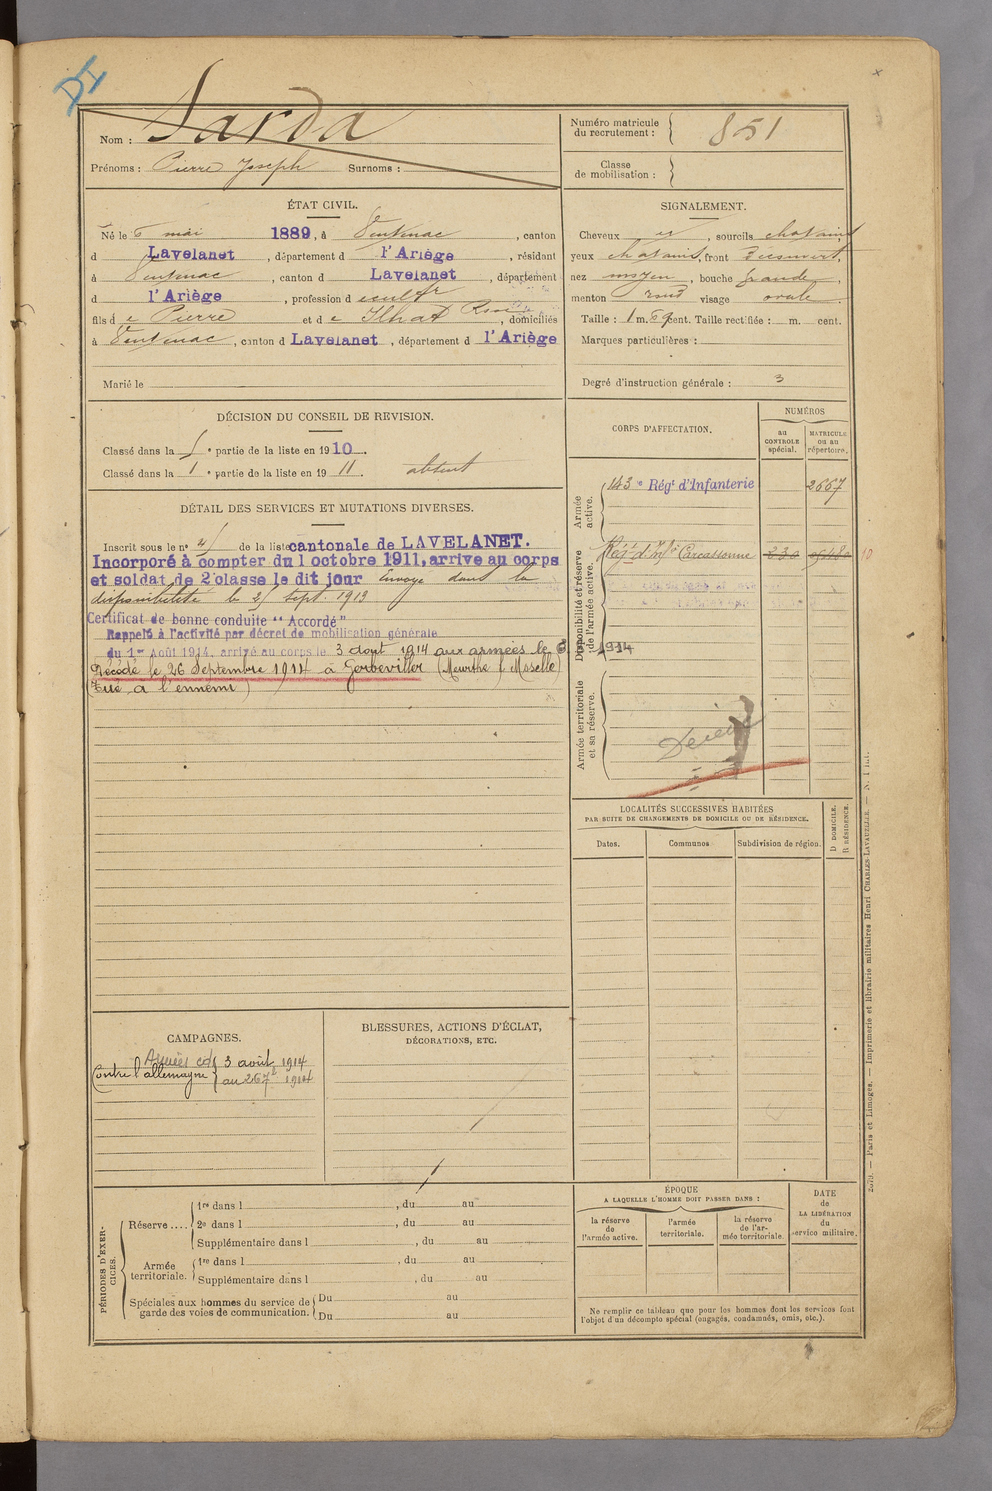 DI
Nom : Sarda
Prénoms : Pierre Joseph Surnoms :
Numéro matricule du recrutement : 851
Classe de mobilisation :
ÉTAT CIVIL.
Né le 6 mai 1889, à Ventenac, canton
d Lavelanet, département d l'Ariège, résidant
à Ventenac, canton d Lavelanet, département
d l'Ariège, profession d cultr
fils de Pierre et de Ilhat Rose, domiciliés
à Ventenac, canton d Lavelanet, département d l'Ariège
Marié le
SIGNALEMENT.
Cheveux et, sourcils chatains
yeux chatains, front découvert,
nez moyen, bouche grande
menton rond visage ovale
Taille : 1 m. 69 cent. Taille rectifiée : m. cent.
Marques particulières :
Degré d'instruction générale : 3
DÉCISION DU CONSEIL DE REVISION.
Classé dans la e partie de la liste en 1910.
Classé dans la 1e partie de la liste en 1911. absent
DÉTAIL DES SERVICES ET MUTATIONS DIVERSES.
Inscrit sous le n° de la liste cantonale de LAVELANET.
Incorporé à compter du 1 octobre 1911, arrive au corps
et soldat de 2e classe le dit jour Envoyé dans la
disponibilité le 25 Sept. 1913
Certificat de bonne conduite "Accordé"
Rappelé à l'activité par décret de mobilisation générale
du 1er Août 1914, arrivé au corps le 3 août 1914 aux armées le 1914
Décédé le 26 Septembre 1914 à Gerbeviller (Meurthe & Moselle)
(Tué à l'ennemi)
CORPS D'AFFECTATION.
NUMÉROS
au CONTROLE spécial.
MATRICULE ou au répertoire.
Armée active.
143e Régt d'Infanterie 2667
Disponibilité et réserve de l'armée active.
Régt d'Infie Carcassonne
10
Armée territoriale et sa réserve.
LOCALITÉS SUCCESSIVES HABITÉES
PAR SUITE DE CHANGEMENTS DE DOMICILE OU DE RÉSIDENCE.
Dates. Communes Subdivision de région.
D DOMICILE.
R RÉSIDENCE.
CAMPAGNES.
Contre l'allemagne 3 août 1914
au 26 7bre 1914
BLESSURES, ACTIONS D'ÉCLAT,
DÉCORATIONS, ETC.
PÉRIODES D'EXERCICES.
Réserve....
1re dans l , du au
2e dans l , du au
Supplémentaire dans l , du au
Armée territoriale.
1re dans l , du au
Supplémentaire dans l , du au
Spéciales aux hommes du service de garde des voies de communication.
Du au
Du au
ÉPOQUE
A LAQUELLE L'HOMME DOIT PASSER DANS :
la réserve de l'armée active.
l'armée territoriale.
la réserve de l'armée territoriale.
DATE de LA LIBÉRATION du service militaire.
Ne remplir ce tableau que pour les hommes dont les services font
l'objet d'un décompte spécial (engagés, condamnés, omis, etc.).
Paris et Limoges. — Imprimerie et librairie militaires Henri CHARLES-LAVAUZELLE.